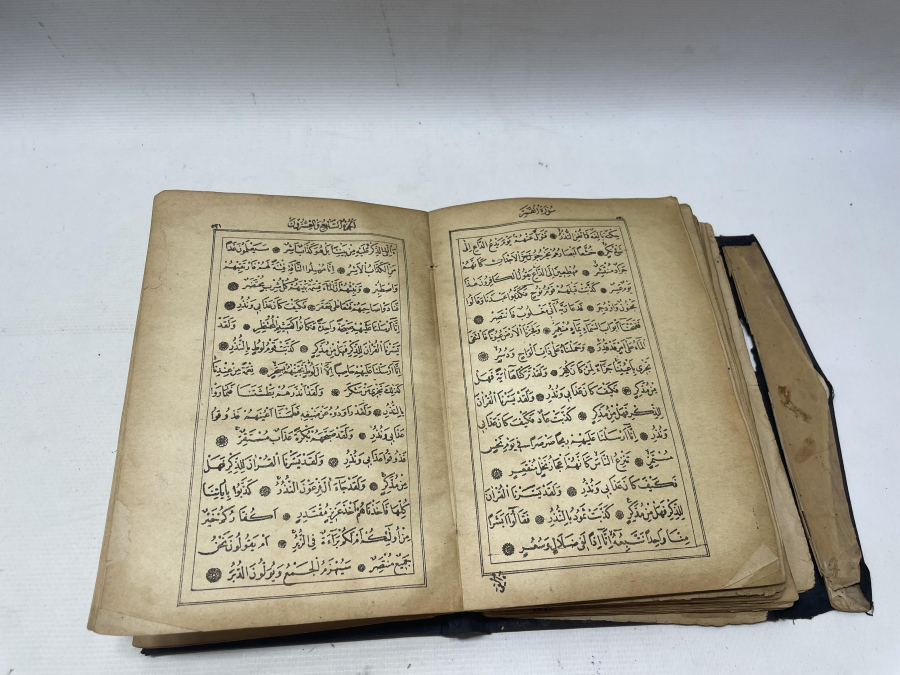 سُورَةُ الْقَمَرِ
حِكْمَةٌ بَالِغَةٌ فَمَا تُغْنِ النُّذُرُ فَتَوَلَّ عَنْهُمْ يَوْمَ يَدْعُ الدَّاعِ إِلَى
شَيْءٍ نُكُرٍ خُشَّعًا أَبْصَارُهُمْ يَخْرُجُونَ مِنَ الْأَجْدَاثِ كَأَنَّهُمْ
جَرَادٌ مُنْتَشِرٌ مُهْطِعِينَ إِلَى الدَّاعِ يَقُولُ الْكَافِرُونَ هَذَا
يَوْمٌ عَسِرٌ كَذَّبَتْ قَبْلَهُمْ قَوْمُ نُوحٍ فَكَذَّبُوا عَبْدَنَا وَقَالُوا
مَجْنُونٌ وَازْدُجِرَ فَدَعَا رَبَّهُ أَنِّي مَغْلُوبٌ فَانْتَصِرْ
فَفَتَحْنَا أَبْوَابَ السَّمَاءِ بِمَاءٍ مُنْهَمِرٍ وَفَجَّرْنَا الْأَرْضَ عُيُونًا فَالْتَقَى
الْمَاءُ عَلَى أَمْرٍ قَدْ قُدِرَ وَحَمَلْنَاهُ عَلَى ذَاتِ أَلْوَاحٍ وَدُسُرٍ
تَجْرِي بِأَعْيُنِنَا جَزَاءً لِمَنْ كَانَ كُفِرَ وَلَقَدْ تَرَكْنَاهَا آيَةً فَهَلْ
مِنْ مُدَّكِرٍ فَكَيْفَ كَانَ عَذَابِي وَنُذُرِ وَلَقَدْ يَسَّرْنَا الْقُرْآنَ
لِلذِّكْرِ فَهَلْ مِنْ مُدَّكِرٍ كَذَّبَتْ عَادٌ فَكَيْفَ كَانَ عَذَابِي
وَنُذُرِ إِنَّا أَرْسَلْنَا عَلَيْهِمْ رِيحًا صَرْصَرًا فِي يَوْمِ نَحْسٍ
مُسْتَمِرٍّ تَنْزِعُ النَّاسَ كَأَنَّهُمْ أَعْجَازُ نَخْلٍ مُنْقَعِرٍ
فَكَيْفَ كَانَ عَذَابِي وَنُذُرِ وَلَقَدْ يَسَّرْنَا الْقُرْآنَ
لِلذِّكْرِ فَهَلْ مِنْ مُدَّكِرٍ كَذَّبَتْ ثَمُودُ بِالنُّذُرِ فَقَالُوا أَبَشَرًا
مِنَّا وَاحِدًا نَتَّبِعُهُ إِنَّا إِذًا لَفِي ضَلَالٍ وَسُعُرٍ
الْجُزْءُ السَّابِعُ وَالْعِشْرُونَ
ءَأُلْقِيَ الذِّكْرُ عَلَيْهِ مِنْ بَيْنِنَا بَلْ هُوَ كَذَّابٌ أَشِرٌ سَيَعْلَمُونَ غَدًا
مَنِ الْكَذَّابُ الْأَشِرُ إِنَّا مُرْسِلُوا النَّاقَةِ فِتْنَةً لَهُمْ فَارْتَقِبْهُمْ
وَاصْطَبِرْ وَنَبِّئْهُمْ أَنَّ الْمَاءَ قِسْمَةٌ بَيْنَهُمْ كُلُّ شِرْبٍ مُحْتَضَرٌ
فَنَادَوْا صَاحِبَهُمْ فَتَعَاطَى فَعَقَرَ فَكَيْفَ كَانَ عَذَابِي وَنُذُرِ
إِنَّا أَرْسَلْنَا عَلَيْهِمْ صَيْحَةً وَاحِدَةً فَكَانُوا كَهَشِيمِ الْمُحْتَظِرِ وَلَقَدْ
يَسَّرْنَا الْقُرْآنَ لِلذِّكْرِ فَهَلْ مِنْ مُدَّكِرٍ كَذَّبَتْ قَوْمُ لُوطٍ بِالنُّذُرِ
إِنَّا أَرْسَلْنَا عَلَيْهِمْ حَاصِبًا إِلَّا آلَ لُوطٍ نَجَّيْنَاهُمْ بِسَحَرٍ نِعْمَةً مِنْ عِنْدِنَا
كَذَلِكَ نَجْزِي مَنْ شَكَرَ وَلَقَدْ أَنْذَرَهُمْ بَطْشَتَنَا فَتَمَارَوْا
بِالنُّذُرِ وَلَقَدْ رَاوَدُوهُ عَنْ ضَيْفِهِ فَطَمَسْنَا أَعْيُنَهُمْ فَذُوقُوا
عَذَابِي وَنُذُرِ وَلَقَدْ صَبَّحَهُمْ بُكْرَةً عَذَابٌ مُسْتَقِرٌّ
فَذُوقُوا عَذَابِي وَنُذُرِ وَلَقَدْ يَسَّرْنَا الْقُرْآنَ لِلذِّكْرِ فَهَلْ
مِنْ مُدَّكِرٍ وَلَقَدْ جَاءَ آلَ فِرْعَوْنَ النُّذُرُ كَذَّبُوا بِآيَاتِنَا
كُلِّهَا فَأَخَذْنَاهُمْ أَخْذَ عَزِيزٍ مُقْتَدِرٍ أَكُفَّارُكُمْ خَيْرٌ
مِنْ أُولَئِكُمْ أَمْ لَكُمْ بَرَاءَةٌ فِي الزُّبُرِ أَمْ يَقُولُونَ نَحْنُ
جَمِيعٌ مُنْتَصِرٌ سَيُهْزَمُ الْجَمْعُ وَيُوَلُّونَ الدُّبُرَ